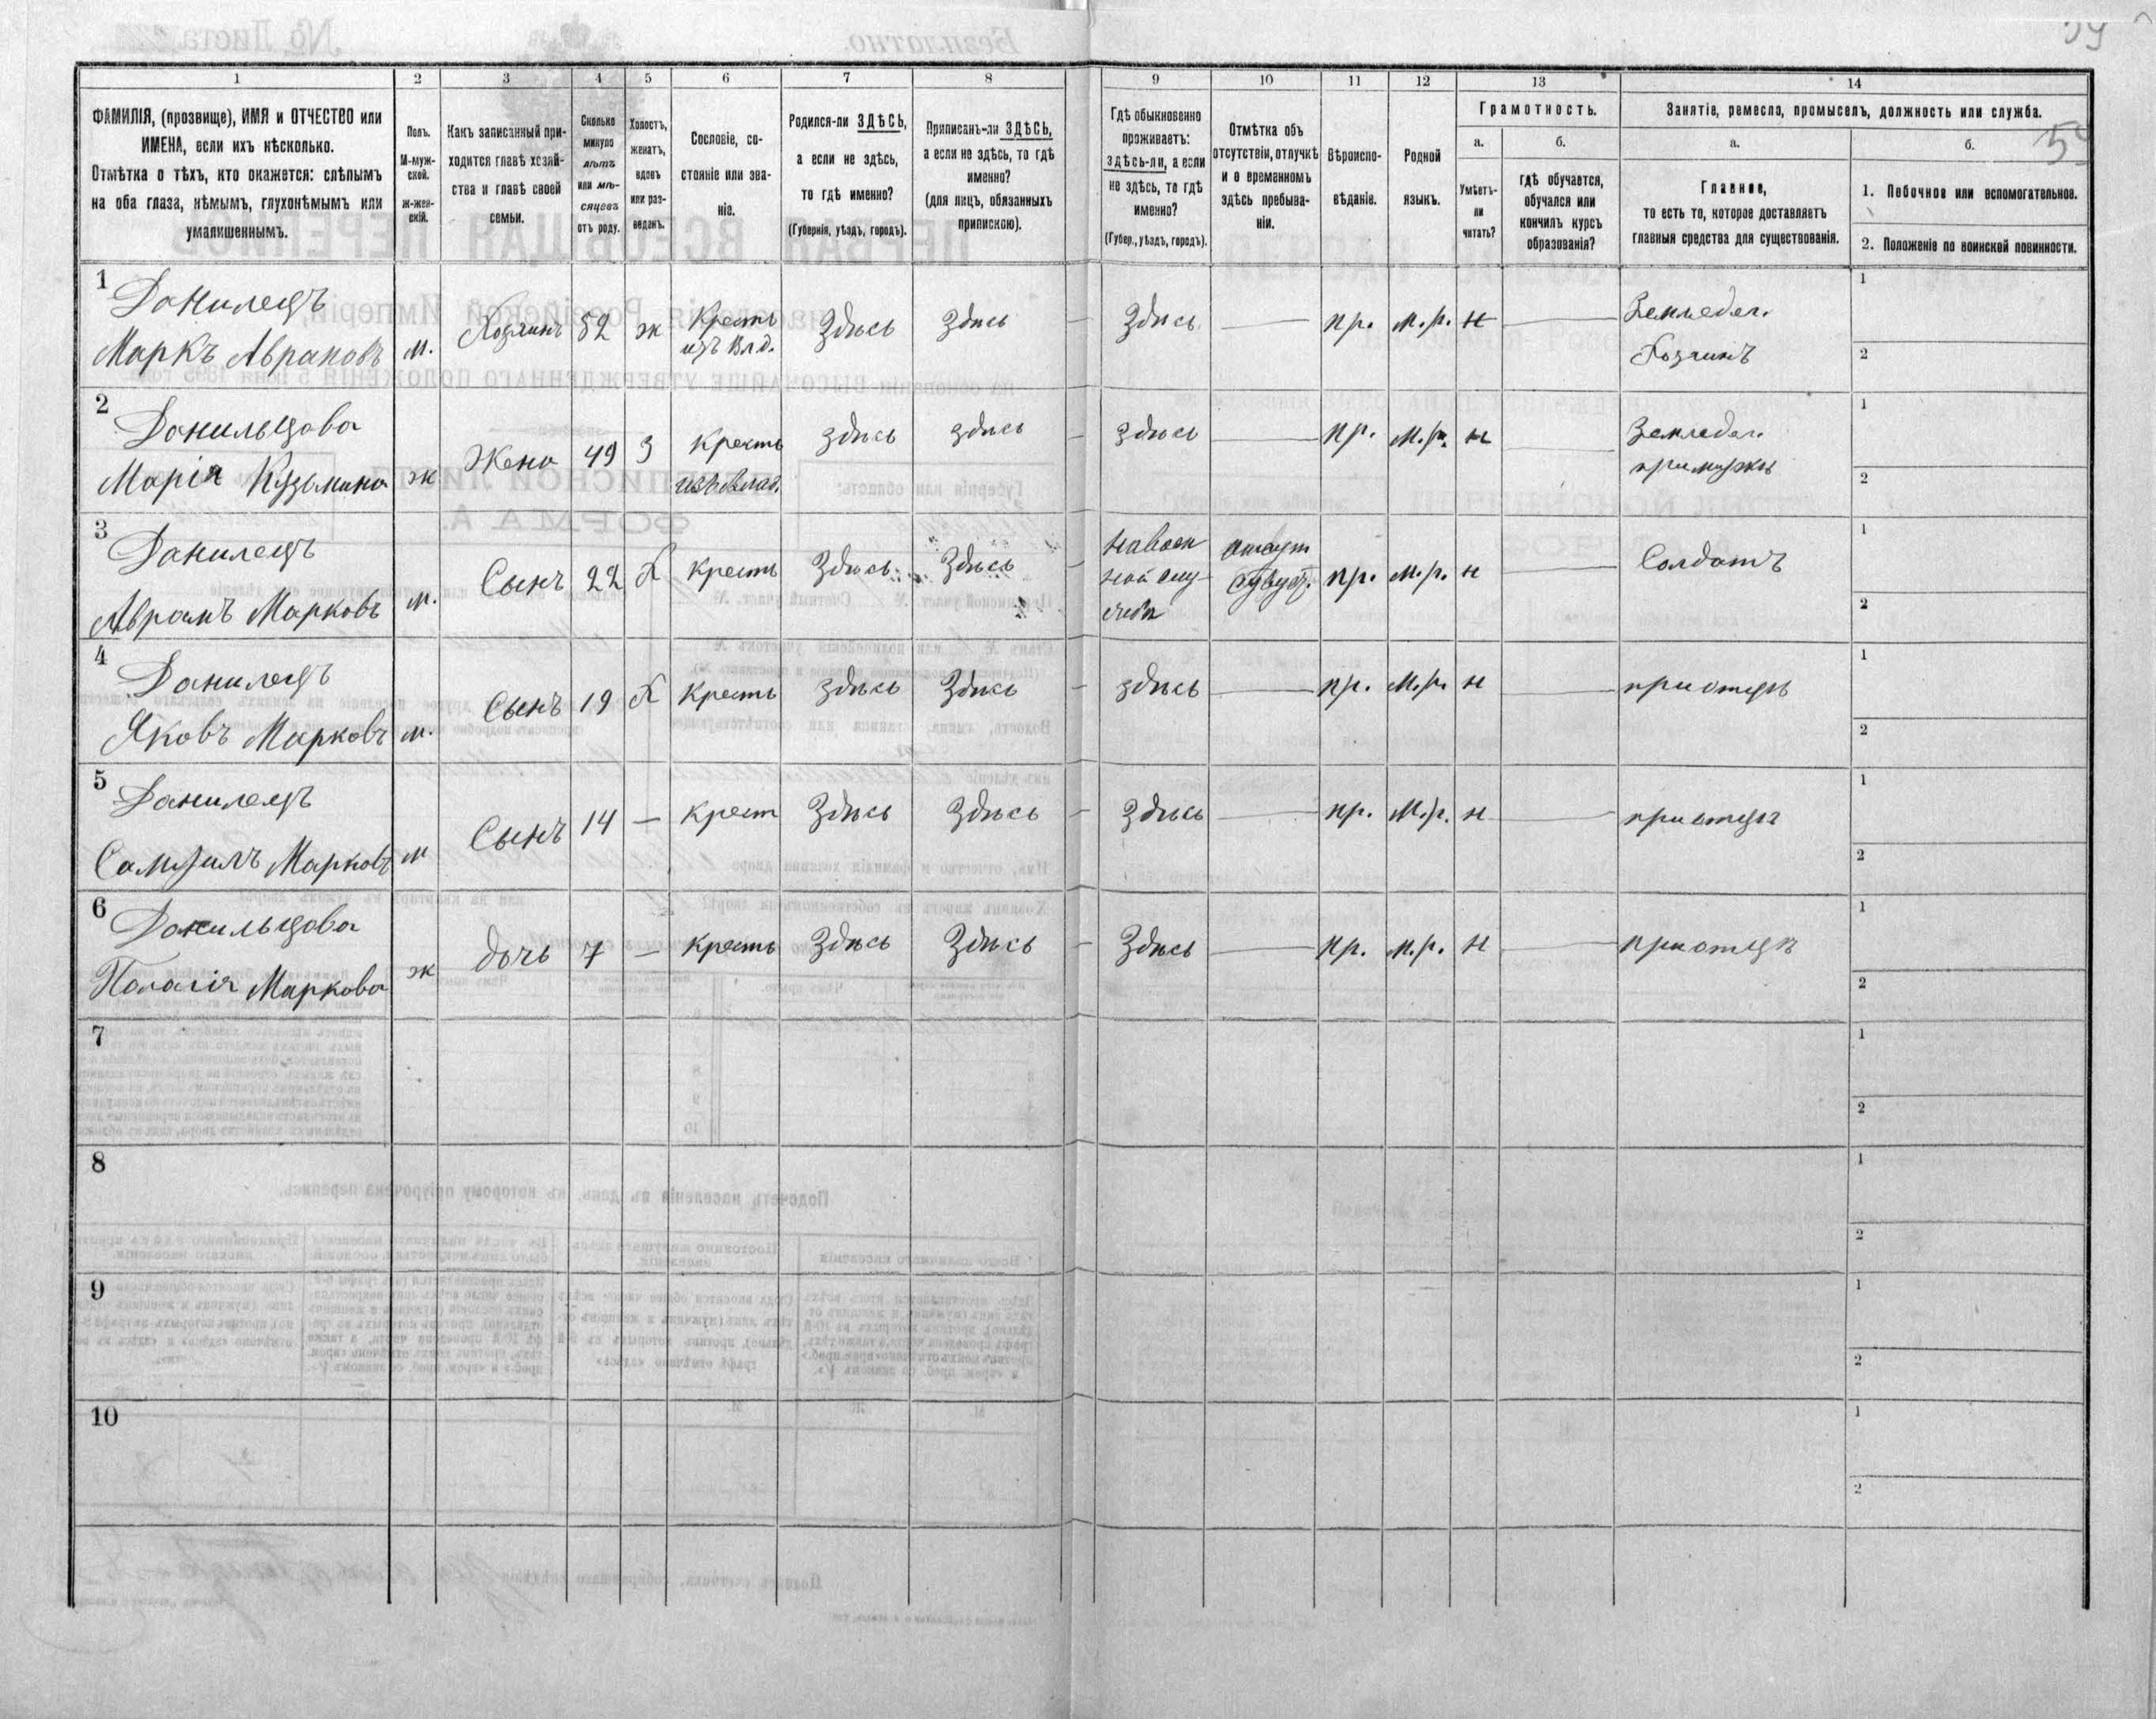 59
1
2
3
4
5
6
7
8
9
10
11
12
13
14
ФАМИЛІЯ, (прозвище), ИМЯ и ОТЧЕСТВО или
ИМЕНА, если ихъ нѣсколько.
Отмѣтка о тѣхъ, кто окажется: слѣпымъ
на оба глаза, нѣмымъ, глухонѣмымъ или
умалишеннымъ.
Полъ.
М-муж-
ской.
Ж-жен-
скій.
Какъ записанный при-
ходится главѣ хозяй-
ства и главѣ своей
семьи.
Сколько
минуло
лѣтъ
или мѣ-
сяцевъ
отъ роду.
Холостъ,
женатъ,
вдовъ
или раз-
веденъ.
Сословіе, со-
стояніе или зва-
ніе.
Родился-ли ЗДѢСЬ,
а если не здѣсь,
то гдѣ именно?
(Губернія, уѣздъ, городъ).
Приписанъ-ли ЗДѢСЬ,
а если не здѣсь, то гдѣ
именно?
(для лицъ, обязанныхъ
припискою).
Гдѣ обыкновенно
проживаетъ:
здѣсь-ли, а если
не здѣсь, то гдѣ
именно?
(Губер., уѣздъ, городъ).
Отмѣтка объ
отсутствіи, отлучкѣ
и о временномъ
здѣсь пребыва-
ніи.
Вѣроиспо-
вѣданіе.
Родной
языкъ.
Грамотность.
а.
Умѣетъ-
ли
читать?
б.
гдѣ обучается,
обучался или
кончилъ курсъ
образованія?
Занятіе, ремесло, промыселъ, должность или служба.
а.
Главное,
то есть то, которое доставляетъ
главныя средства для существованія.
б.
59
1. Побочное или вспомогательное.
2. Положеніе по воинской повинности.
1
Данилецъ
Маркъ Аврамовъ
м.
Хозяинъ
52
ж
Кресть
изъ Влд.
Здѣсь
Здѣсь
Здѣсь
пр.
м.р.
н
Земледел.
Хозяинъ
1
2
2
Данильцова
Марія Кузьмина
ж
Жена
49
З
Кресть
изъ влад.
здѣсь
здѣсь
здѣсь
пр.
м.р.
н
Земледел.
при мужѣ
1
2
3
Данилецъ
Аврамъ Марковъ
м.
Сынъ
22
Х
Кресть
Здѣсь
Здѣсь
На воен
ной слу
жбѣ
отсут
пр.
м.р.
н
Солдатъ
1
2
4
Данилецъ
Яковъ Марковъ
м.
Сынъ
19
Х
Кресть
здѣсь
Здѣсь
здѣсь
пр.
м.р.
н
при отцѣ
1
2
5
Данилецъ
Самуилъ Марковъ
м
Сынъ
14
—
Крест
Здѣсь
Здѣсь
Здѣсь
пр.
м.р.
н
при отцѣ
1
2
6
Данильцова
Палагія Маркова
ж
дочь
7
—
Кресть
Здѣсь
Здѣсь
Здѣсь
пр.
м.р.
н
при отцѣ
1
2
7
1
2
8
1
2
9
1
2
10
1
2